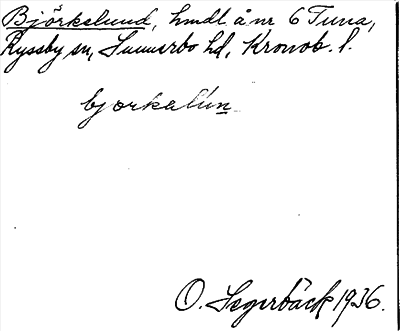 Björkslund, hmdl å nr 6 Tuna,
Ryssby sn, Sunnerbo hd, Kronob. l.
bjorkalun
O. Segerbäck 1936.